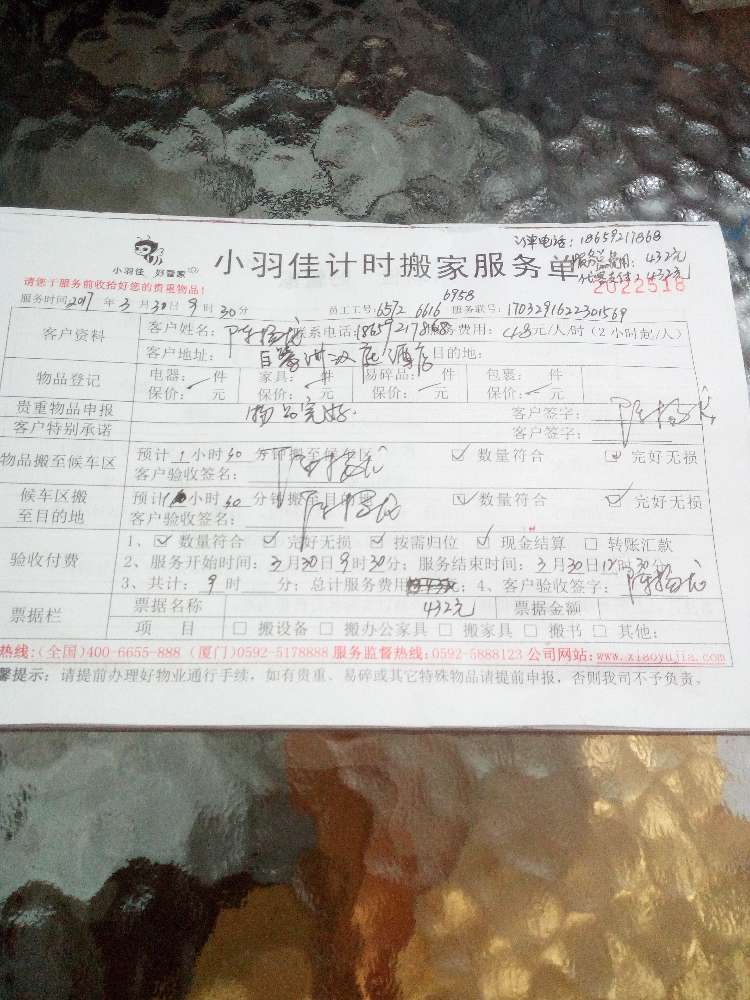 订单电话:18659217868
小羽佳 好管家
小羽佳计时搬家服务单
服务总费用:432元
代票支付:432元
2022518
请您于服务前收拾好您的贵重物品!
6958
服务时间2017年3月30日9时30分 员工工号:6572 6616 服务联号:1703291622301569
客户资料
客户姓名: 联系电话:18659217868服务费用:48元/人/时(2小时起/人)
客户地址: 酒店 目的地:
物品登记
电器: 件 家具: 件 易碎品: 件 包裹: 件
保价: 元 保价: 元 保价: 元 保价: 元
贵重物品申报 物品完好. 客户签字:
客户特别承诺 客户签字:
物品搬至候车区
预计1小时30分钟搬至候车区 ☑数量符合 ☑完好无损
客户验收签名:
候车区搬
至目的地
预计1小时30分钟搬至目的地 ☑数量符合 ☑完好无损
客户验收签名:
验收付费
1、☑数量符合 ☑完好无损 ☑按需归位 ☑现金结算 □转账汇款
2、服务开始时间:3月30日9时30分;服务结束时间:3月30日12时30分
3、共计:9时 分;总计服务费用 元;4、客户验收签字:
432元
票据栏
票据名称 票据金额
项 目 □搬设备 □搬办公家具 □搬家具 □搬书 □其他:
热线:(全国)400-6655-888 (厦门)0592-5178888 服务监督热线:0592-5888123 公司网站:www.xiaoyujia.com
馨提示:请提前办理好物业通行手续,如有贵重、易碎或其它特殊物品请提前申报,否则我司不予负责。